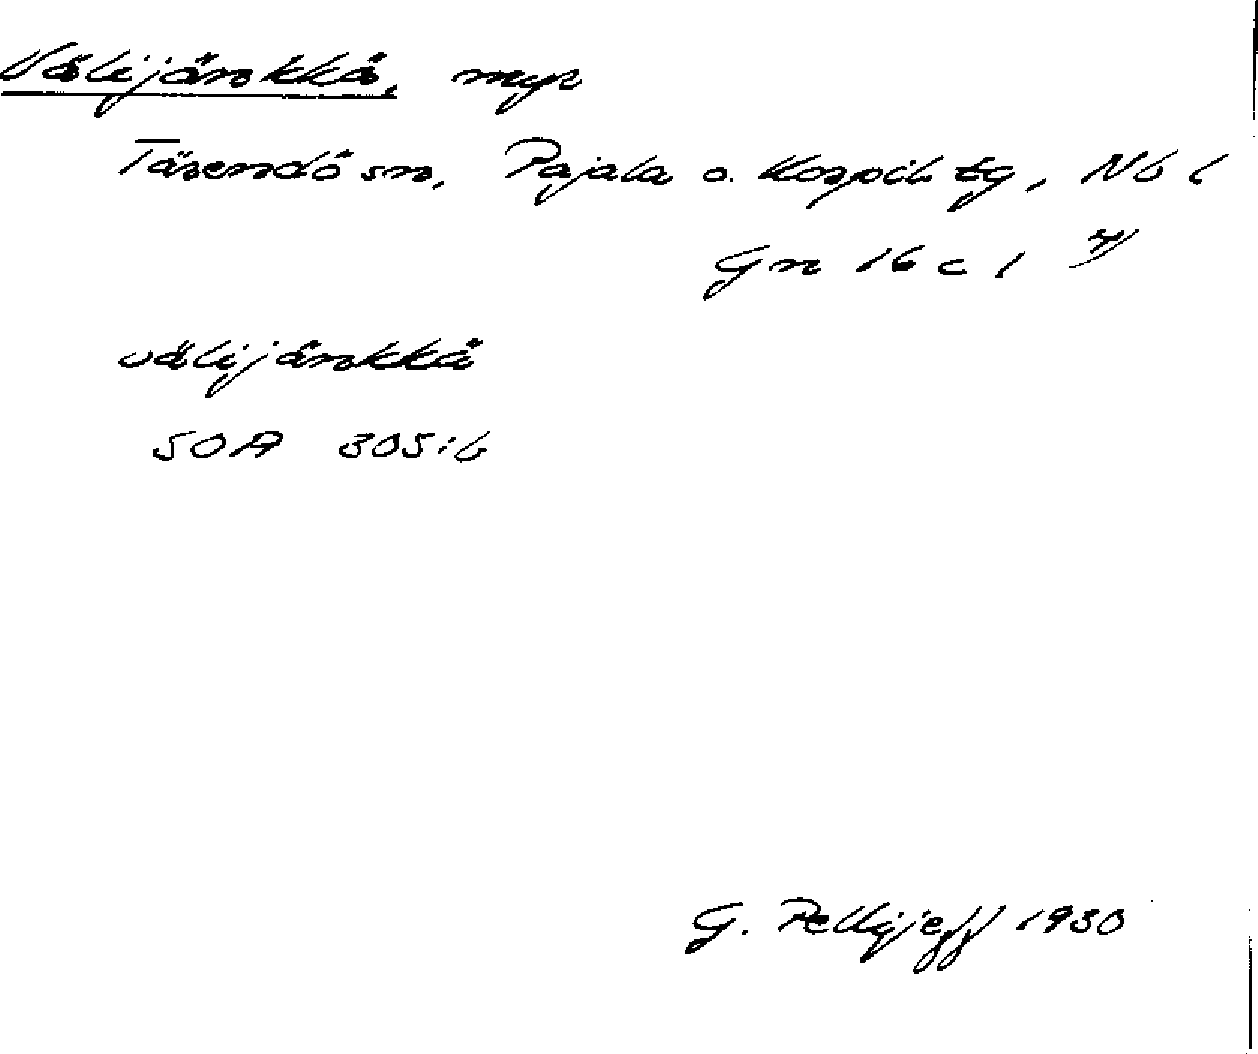 Välijänkkä, myr
Tärendö sn, Pajala o. Korpil. tg, Nb l
Gn 16 c 1
välijänkkä
SOA 305:6
G. Pellijeff 1930